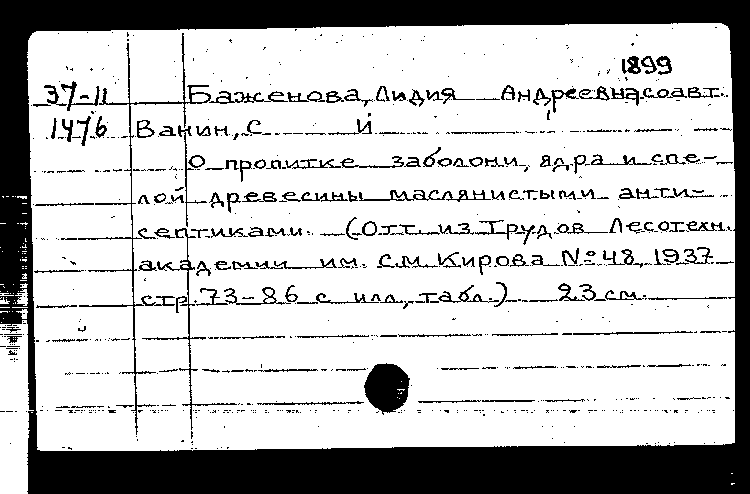 1899
37-11 Баженова, Лидия Андреевна, соавт.
1476 Ванин, С И
О пропитке заболони, ядра и спе-
лой древесины маслянистыми анти-
септиками. (Отт. из Трудов Лесотехн.
академии им. С.М. Кирова № 48, 1937
стр. 73-86 с илл., табл.) 23 см.